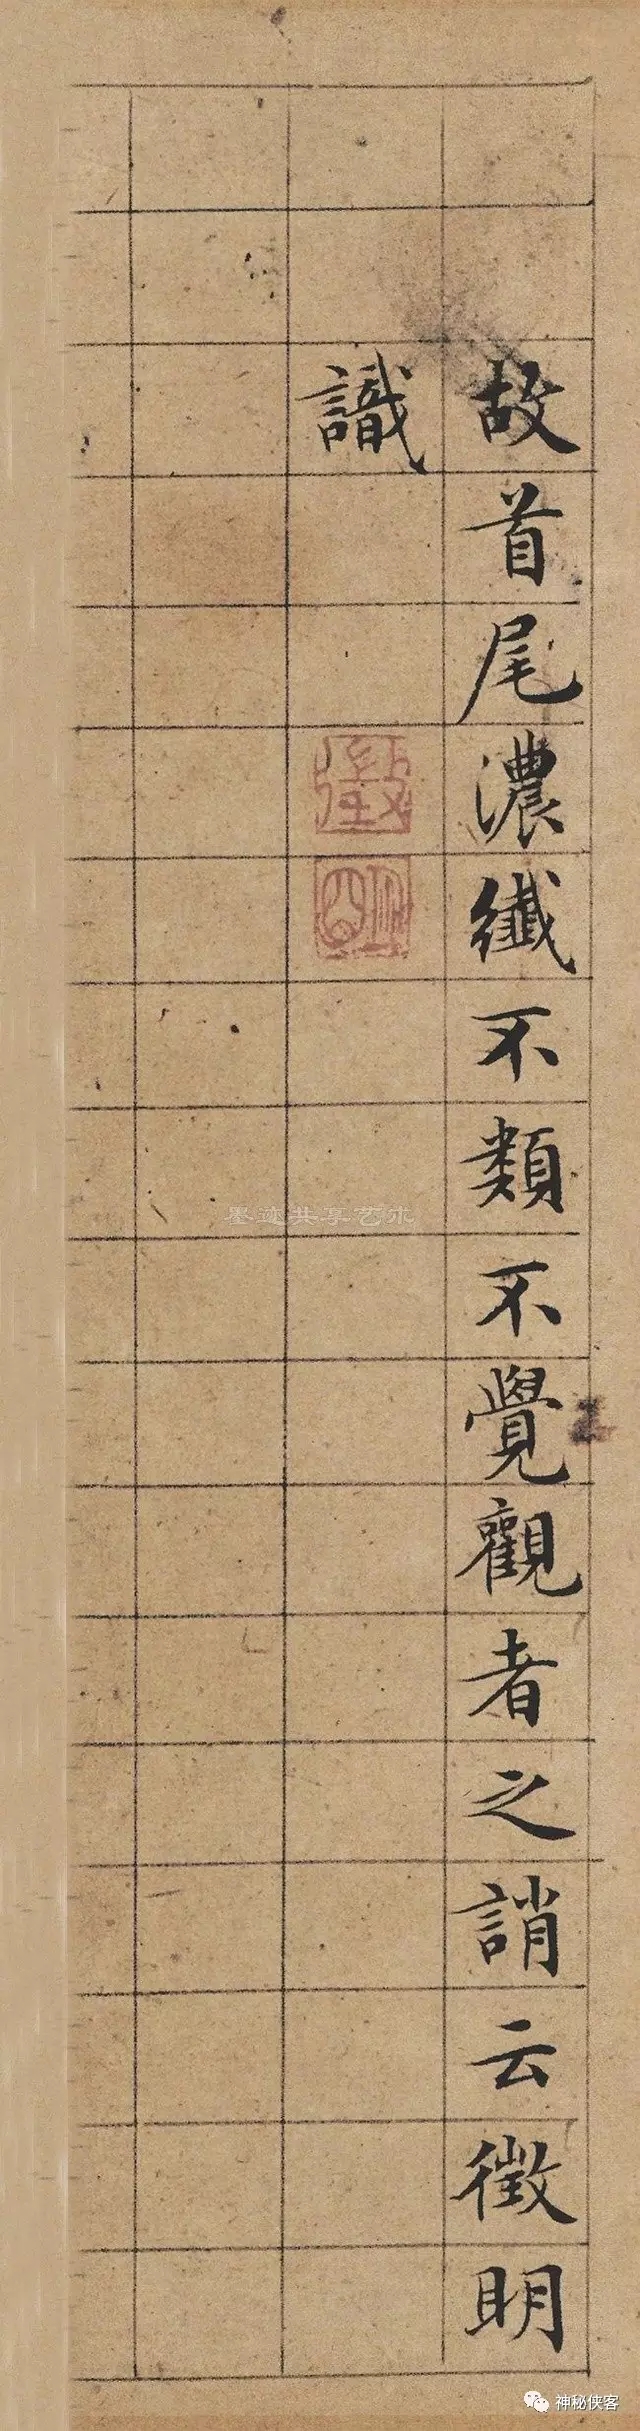 故首尾濃纖不類不覺觀者之誚云徵明
識
徵
明
墨迹共享艺术
神秘侠客